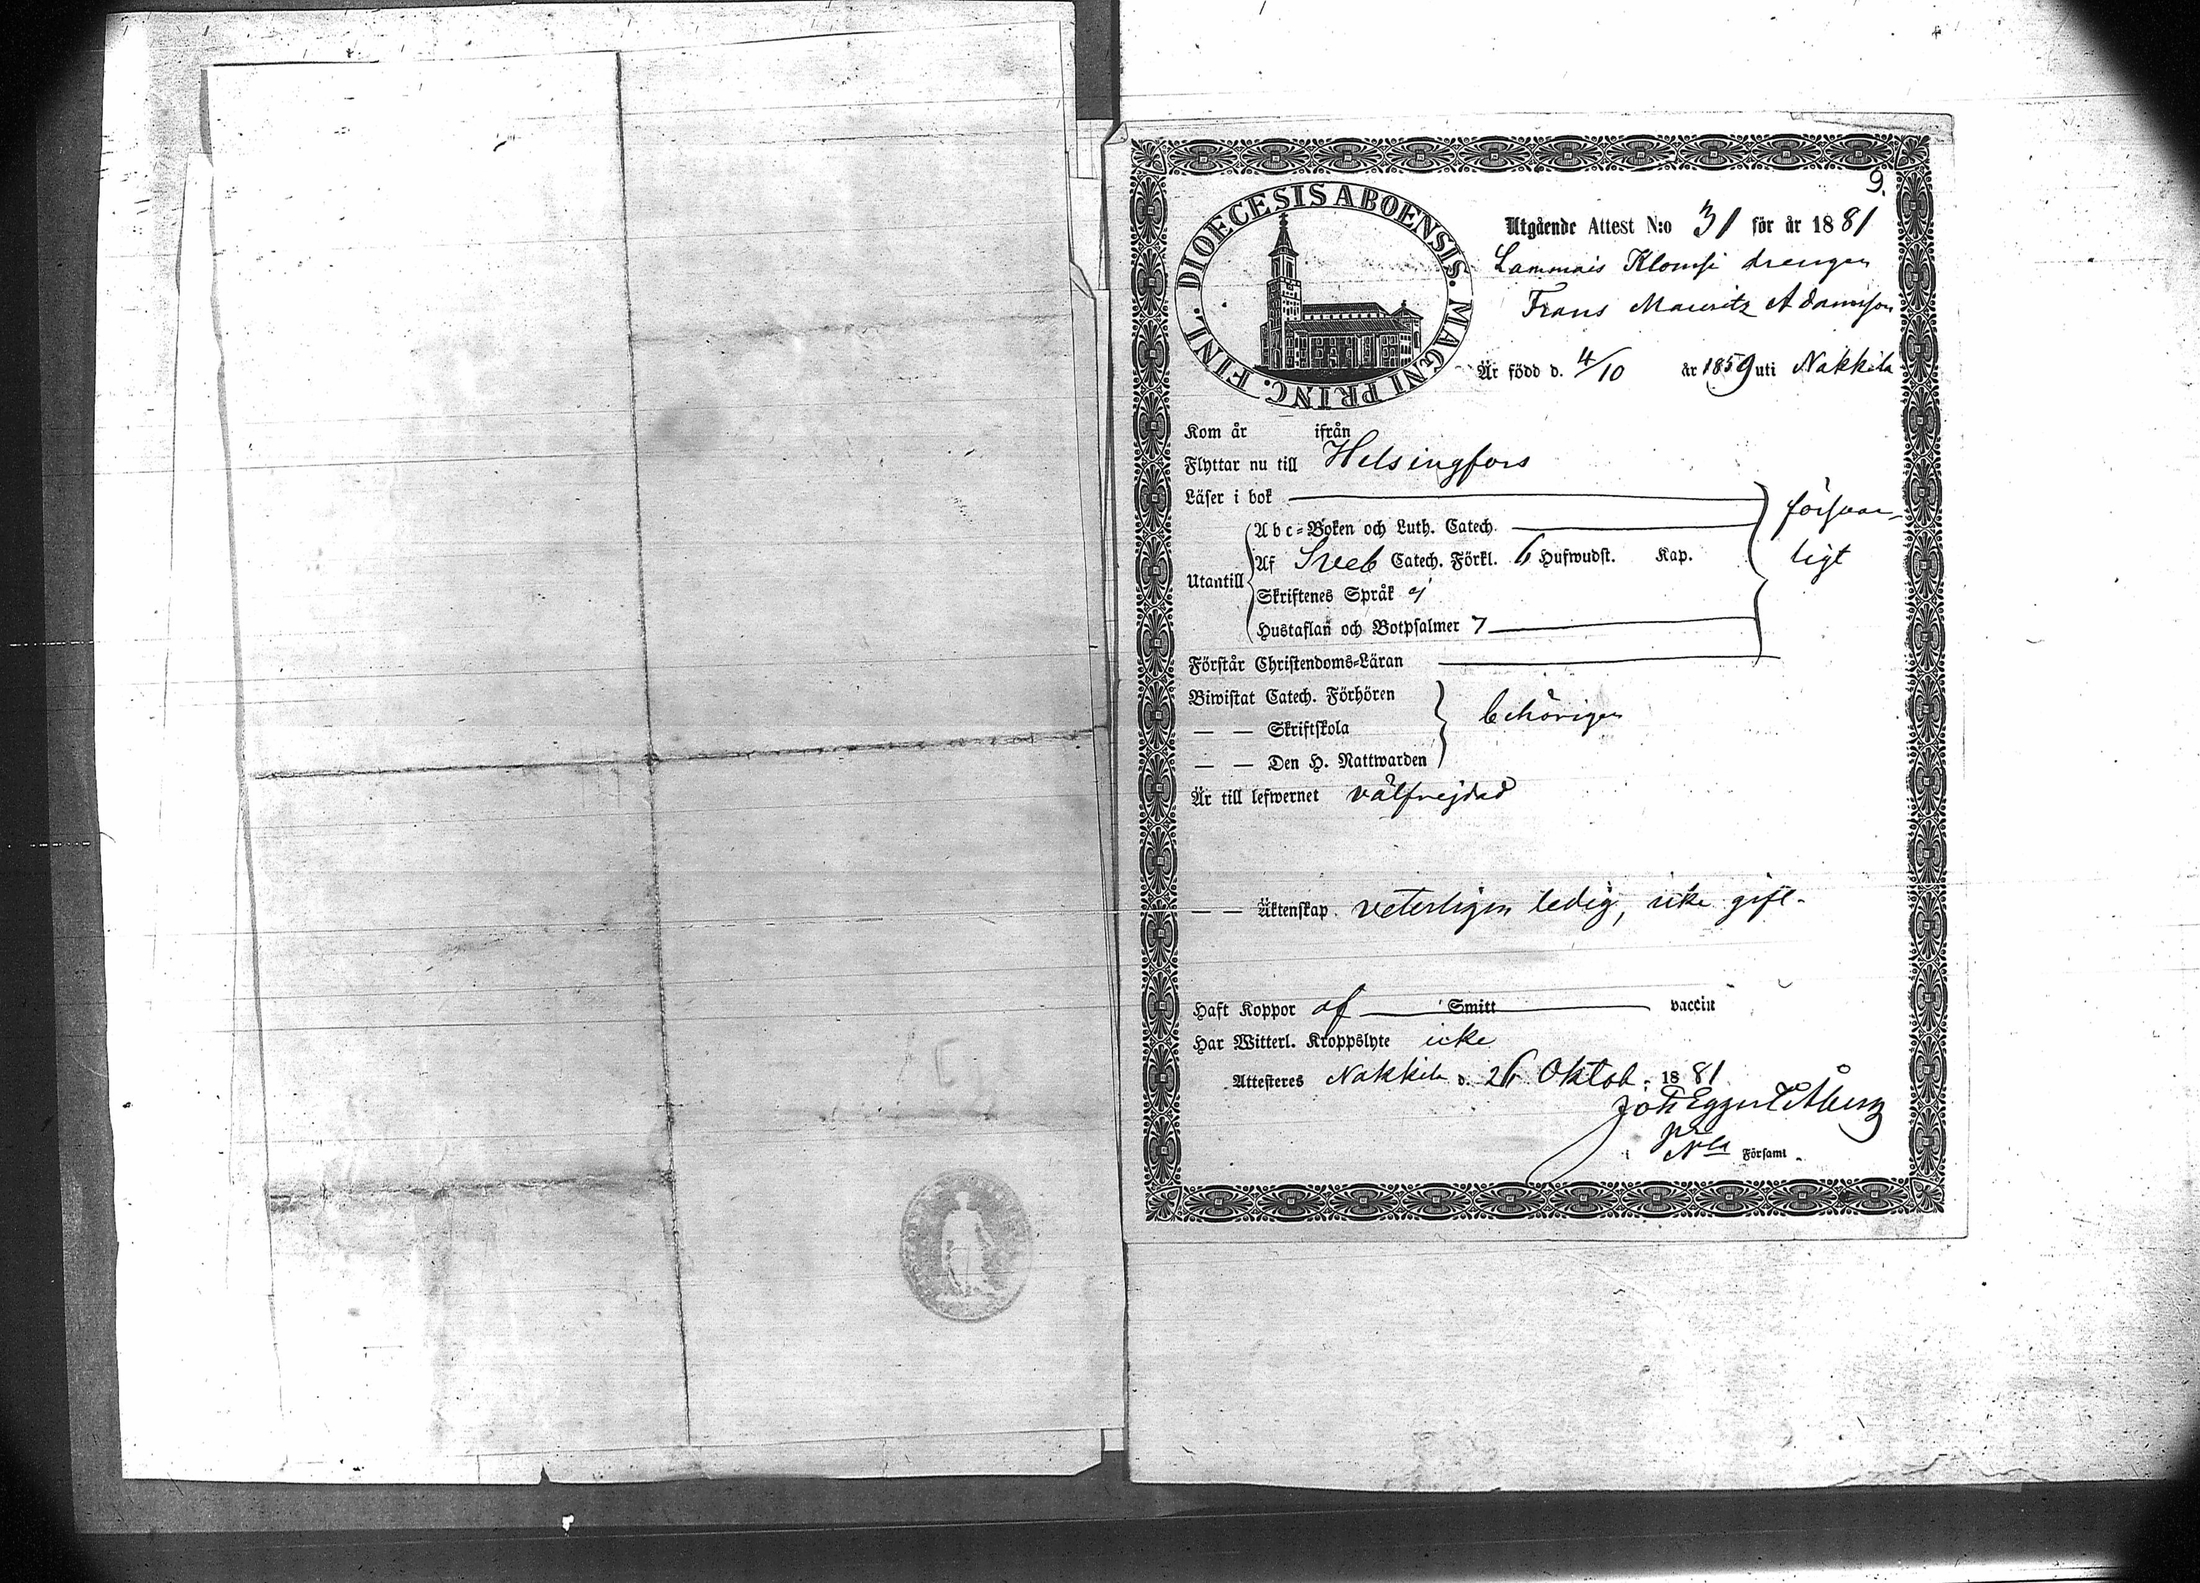 9.
DIOECESIS ABOENSIS. MAGNI PRINC. FINL.
Utgående Attest N:o 31 för år 1881
Lammais Klomsi drengen
Frans Mauritz Adamsson
Är född d. 4/10 år 1859 uti Nakkila
Kom år ifrån
Flyttar nu till Helsingfors
Läser i bok
försvar-
Abc-Boken och Luth. Catech.
Utantill
Af Sveb Catech. Förkl. 6 Hufwudst. Kap.
ligt
Skriftenes Språk ej
Hustaflan och Botpsalmer 7
Förstår Christendoms-Läran
Biwistat Catech. Förhören
— — Skriftskola
behörigen
— — Den H. Nattwarden
Är till lefwernet välfrejdad
— — Äktenskap. veterligen ledig, icke gift.
Haft Koppor af Smitt vaccin
Har Witterl. Kroppslyte icke
Attesteres Nakkila d. 26 Oktob. 1881
Joh.
i Församl.